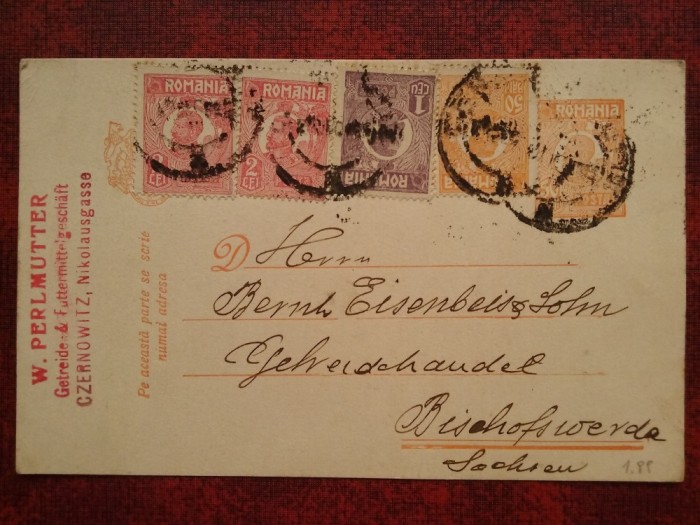 ROMANIA
2
LEI
ROMANIA
2
LEI
ROMANIA
1
LEU
POSTA
ROMANIA
50
BANI
ROMANIA
W. PERLMUTTER
Getreide- & Futtermittelgeschäft
CZERNOWITZ, Nikolausgasse
Pe această parte se scrie
numai adresa
D Herrn
Bernh Eisenbeis & Sohn
Getreidehandel
Bischofswerda
Sachsen
1.88